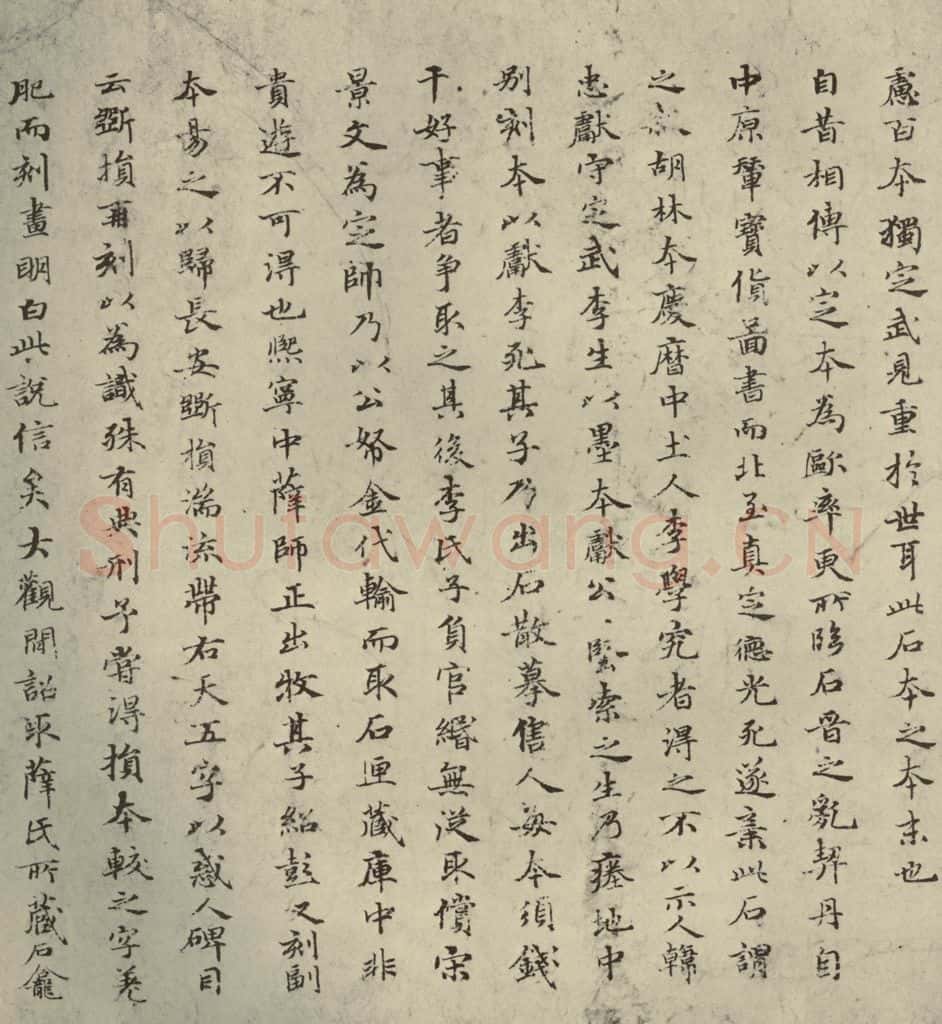 慮百本獨定武見重於世耳此石本之本末也
自昔相傳以定本為歐率更所臨石晉之亂契丹自
中原輦寶貨圖書而北至真定德光死遂棄此石謂
之 胡林本慶曆中土人李學究者得之不以示人韓
忠獻守定武李生以墨本獻公、堅索之生乃瘞地中
別刻本以獻李死其子乃出石散摹售人每本須錢
千好事者爭取之其後李氏子負官緡無從取償宋
景文為定帥乃以公帑金代輸而取石匣藏庫中非
貴遊不可得也熙寧中薛師正出牧其子紹彭又刻副
本易之以歸長安斲損湍流帶右天五字以惑人碑目
云斲損再刻以為識殊有典刑予嘗得損本較之字差
肥而刻畫明白此說信矣大觀間詔取薛氏所藏石龕
Shufawang.CN